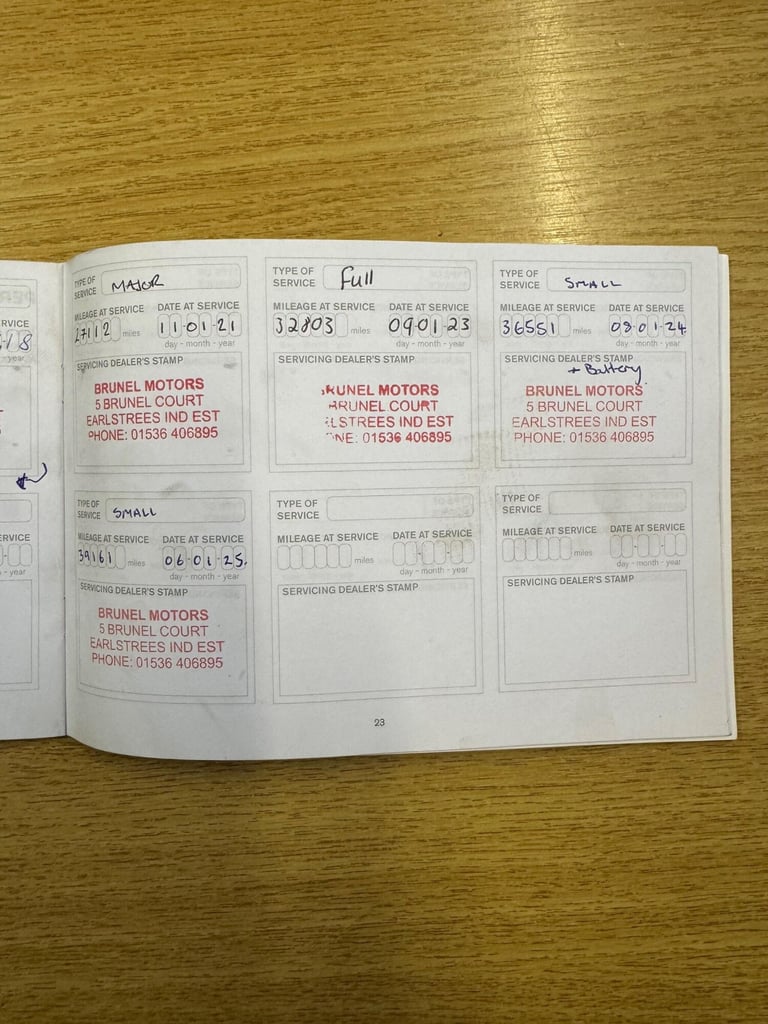 TYPE OF SERVICE MAJOR
MILEAGE AT SERVICE DATE AT SERVICE
27112 miles 11-01-21
day - month - year
SERVICING DEALER'S STAMP
BRUNEL MOTORS
5 BRUNEL COURT
EARLSTREES IND EST
PHONE: 01536 406895
TYPE OF SERVICE Full
MILEAGE AT SERVICE DATE AT SERVICE
32803 miles 09-01-23
day - month - year
SERVICING DEALER'S STAMP
BRUNEL MOTORS
BRUNEL COURT
EARLSTREES IND EST
PHONE: 01536 406895
TYPE OF SERVICE SMALL
MILEAGE AT SERVICE DATE AT SERVICE
36551 miles 09-01-24
day - month - year
SERVICING DEALER'S STAMP
+ Battery.
BRUNEL MOTORS
5 BRUNEL COURT
EARLSTREES IND EST
PHONE: 01536 406895
TYPE OF SERVICE SMALL
MILEAGE AT SERVICE DATE AT SERVICE
39161 miles 06-01-25.
day - month - year
SERVICING DEALER'S STAMP
BRUNEL MOTORS
5 BRUNEL COURT
EARLSTREES IND EST
PHONE: 01536 406895
TYPE OF SERVICE
MILEAGE AT SERVICE DATE AT SERVICE
miles
day - month - year
SERVICING DEALER'S STAMP
TYPE OF SERVICE
MILEAGE AT SERVICE DATE AT SERVICE
miles
day - month - year
SERVICING DEALER'S STAMP
23